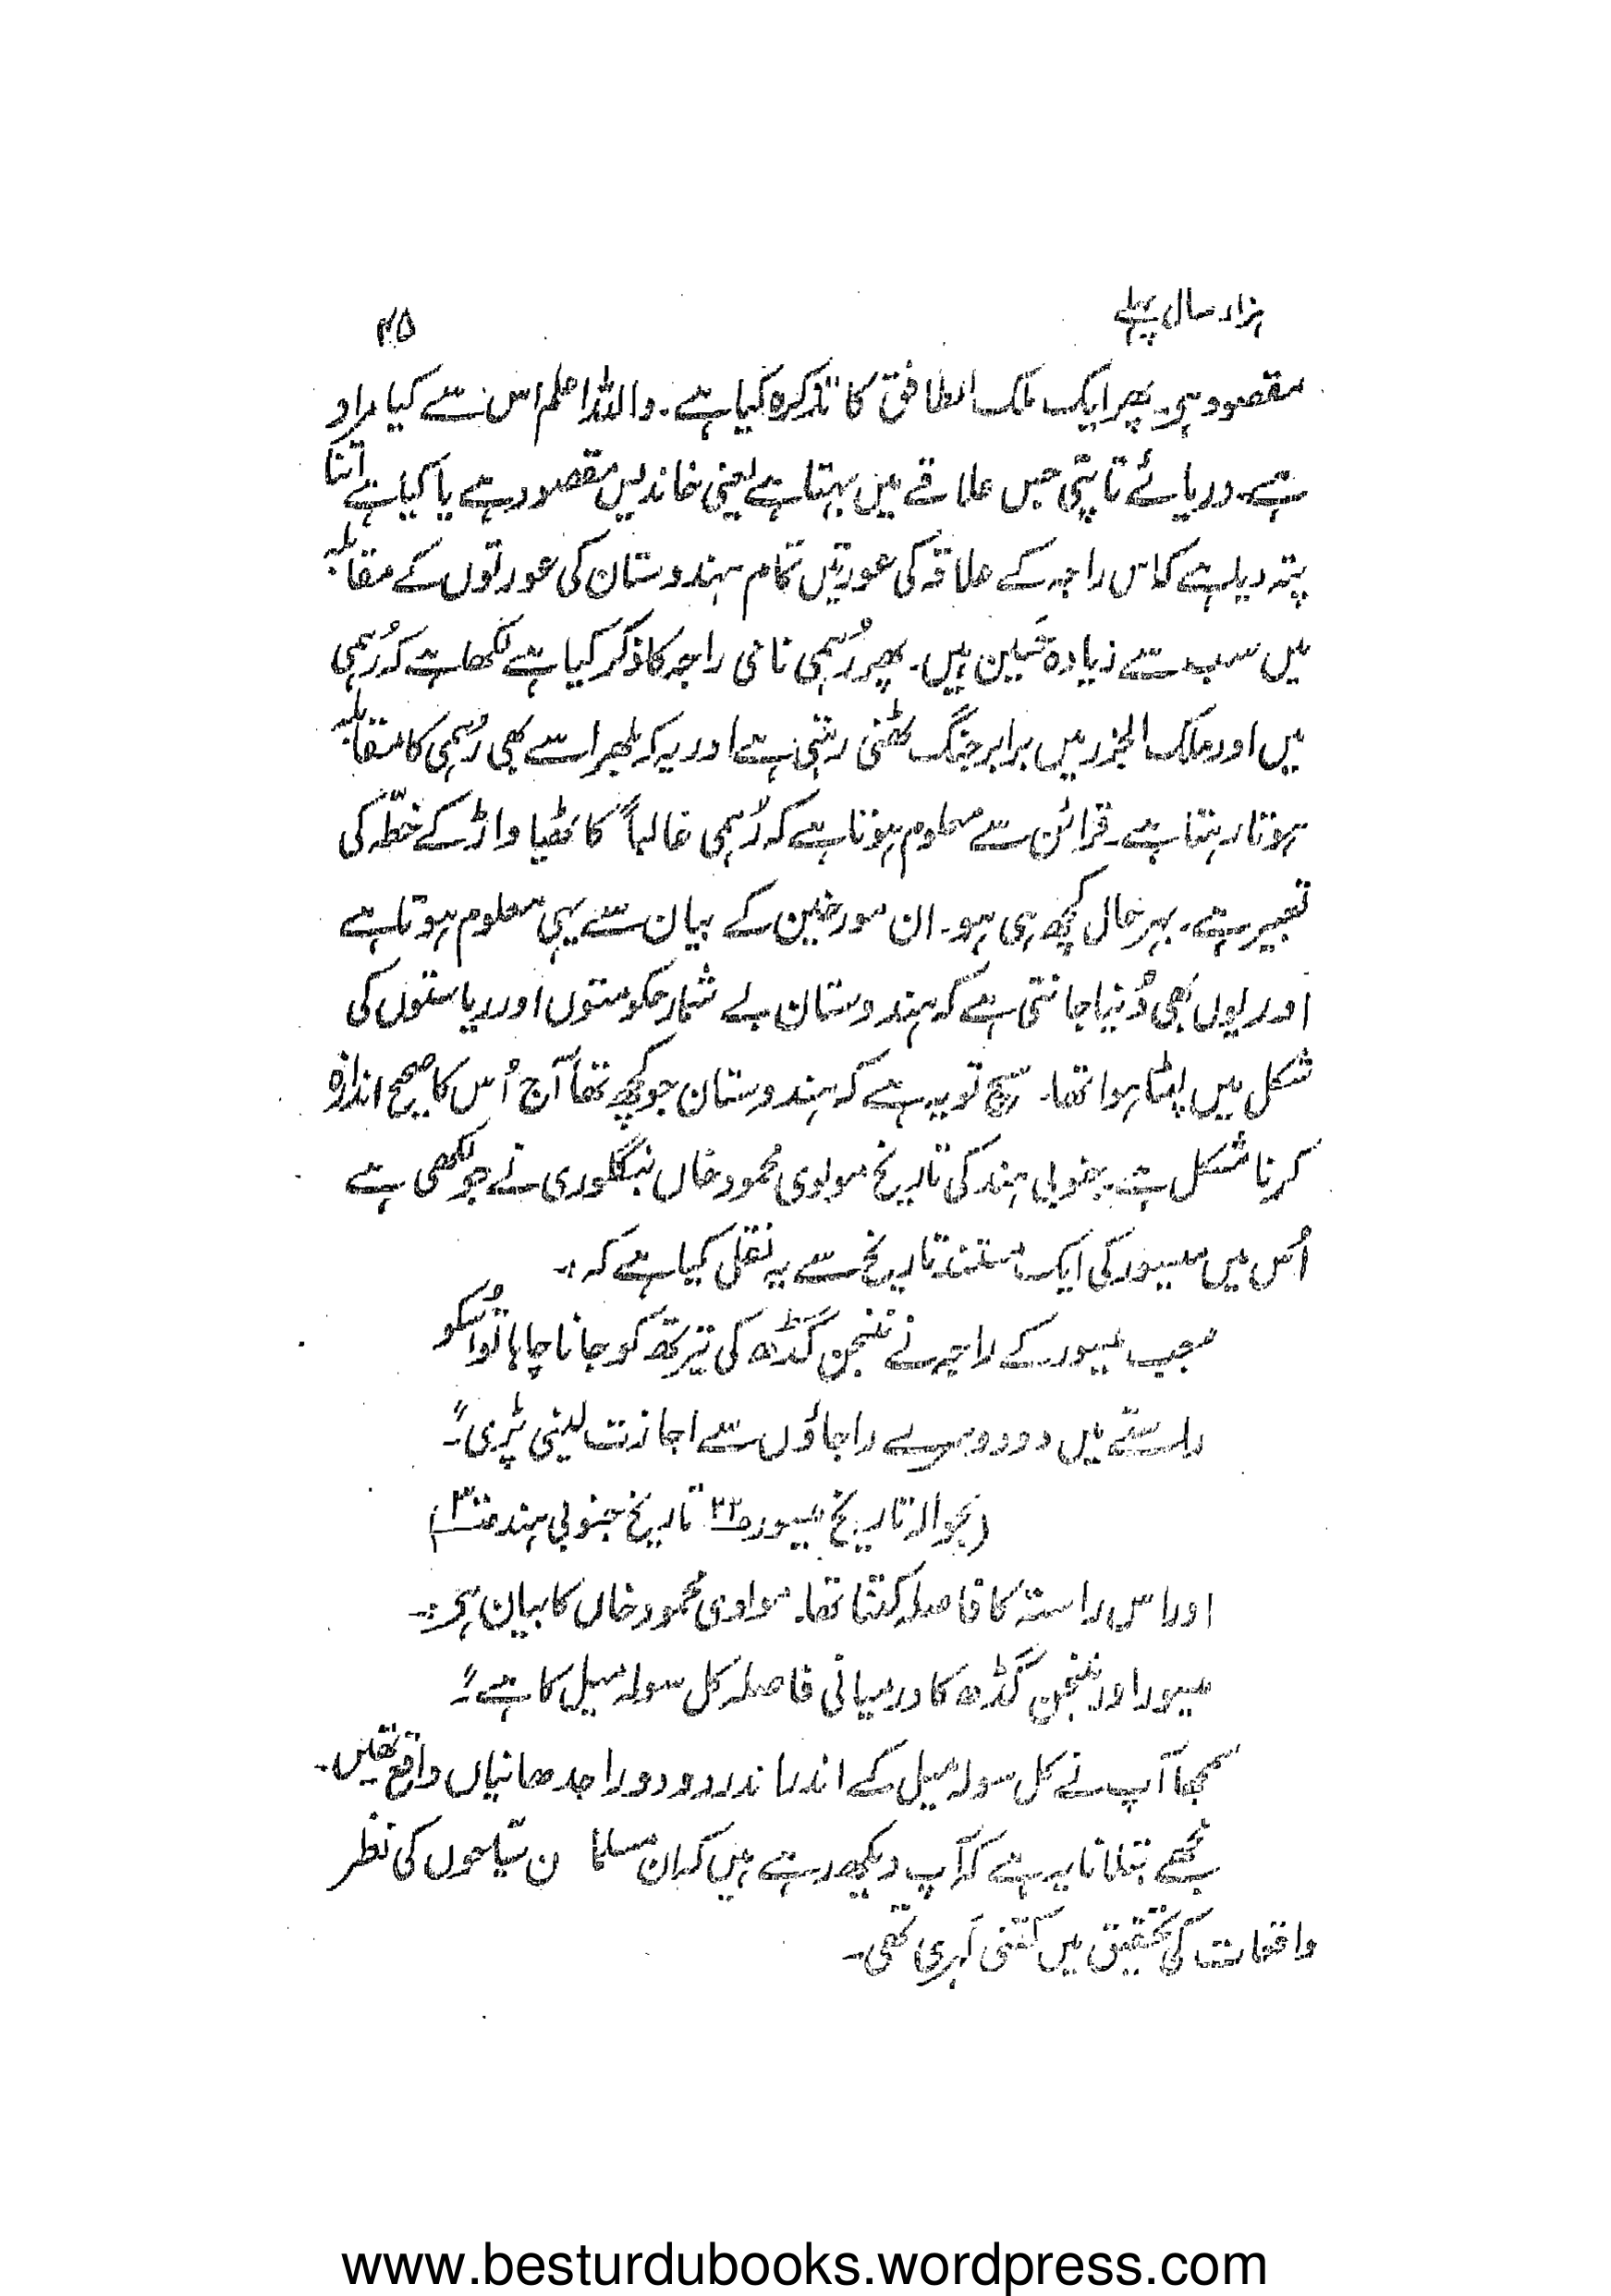 ہزار سال پہلے ۴۵
مقصود ہو۔ پھر ایک ملک الطافق کا تذکرہ کیا ہے۔ واللہ اعلم اس سے کیا مراد
ہے۔ دریائے تاپتی جس علاقے میں بہتا ہے یعنی خاندیس مقصود ہے یا کیا ہے اتنا
پتہ دیا ہے کہ اس راجہ کے علاقہ کی عورتیں تمام ہندوستان کی عورتوں کے مقابلہ
میں سب سے زیادہ حَسین ہیں۔ پھر رُہمی نامی راجہ کا ذکر کیا ہے لکھا ہے کہ رُہمی
میں اور ملک الجزر میں برابر جنگ ٹھنی رہتی ہے اور یہ کہ بلھرا سے بھی رُہمی کا مقابلہ
ہوتا رہتا ہے۔ قرائن سے معلوم ہوتا ہے کہ رُہمی غالباً کاٹھیاواڑ کے خطّہ کی
تعبیر ہے۔ بہر حال کچھ ہی ہو۔ ان مورخین کے بیان سے یہی معلوم ہوتا ہے
اور یوں بھی دُنیا جانتی ہے کہ ہندوستان بے شمار حکومتوں اور ریاستوں کی
شکل میں بٹا ہوا تھا۔ سچ تو یہ ہے کہ ہندوستان جو کچھ تھا آج اُس کا صحیح اندازہ
کرنا مشکل ہے۔ جنوبی ہند کی تاریخ مولوی محمود خاں بنگلوری نے جو لکھی ہے
اُس میں میسور کی ایک مستند تاریخ سے یہ نقل کیا ہے کہ :۔
جب میسور کے راجہ نے ننجن گڈھ کی تیرتھ کو جانا چاہا تو اُسکو
راستے میں دو دوسرے راجاؤں سے اجازت لینی پڑی"۔
(بحوالہ تاریخ میسور ص۲۲ تاریخ جنوبی ہند ص۳)
اور اس راستہ کا فاصلہ کتنا تھا۔ مولوی محمود خاں کا بیان ہے :۔
میسور اور ننجن گڈھ کا درمیانی فاصلہ کل سولہ میل کا ہے"۔
سمجھا آپ نے کل سولہ میل کے اندر اندر دو دو راجدھانیاں واقع تھیں۔
مجھے بتلانا یہ ہے کہ آپ دیکھ رہے ہیں کہ ان مسلمان سیّاحوں کی نظر
واقعات کی تحقیق میں کتنی گہری تھی۔
www.besturdubooks.wordpress.com